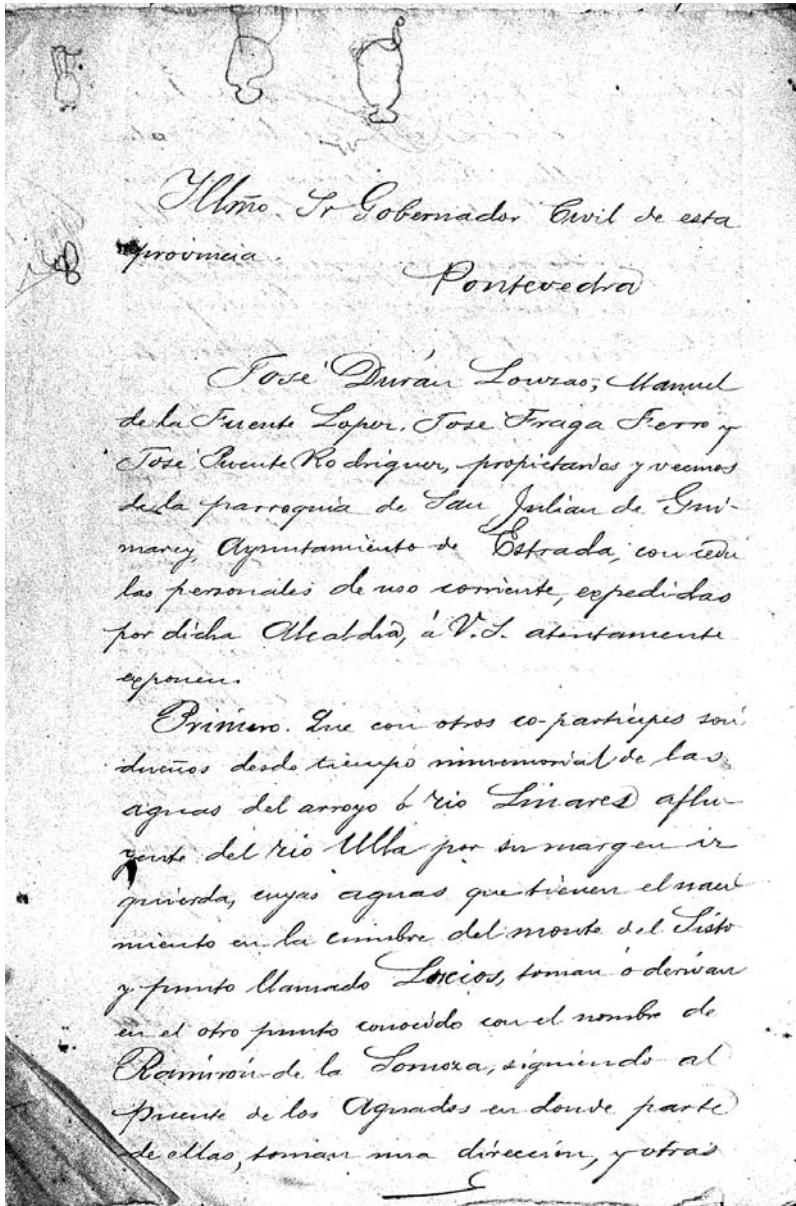 Illmo. Sr Gobernador Civil de esta
provincia.
Pontevedra
José Durán Louzao, Manuel
de la Fuente Lopez, Jose Fraga Ferro y
José Puente Rodriguez, propietarios y vecinos
de la parroquia de San Julian de Gui-
marey, Ayuntamiento de Estrada, con cedu
las personales de uso corriente, expedidas
por dicha Alcaldia, á V.S. atentamente
exponen.
Primero. Que con otros co-participes son
dueños desde tiempo inmemorial de las
aguas del arroyo ó rio Linares aflu-
yente del rio Ulla por su margen iz
quierda, cuyas aguas que tienen el naci
miento en la cumbre del monte del Sisto
y punto llamado Lucios, toman ó derivan
en el otro punto conocido con el nombre de
Ramirón de la Somoza, siguiendo al
Puente de los Aguados en donde parte
de ellas, toman una dirección, y otras